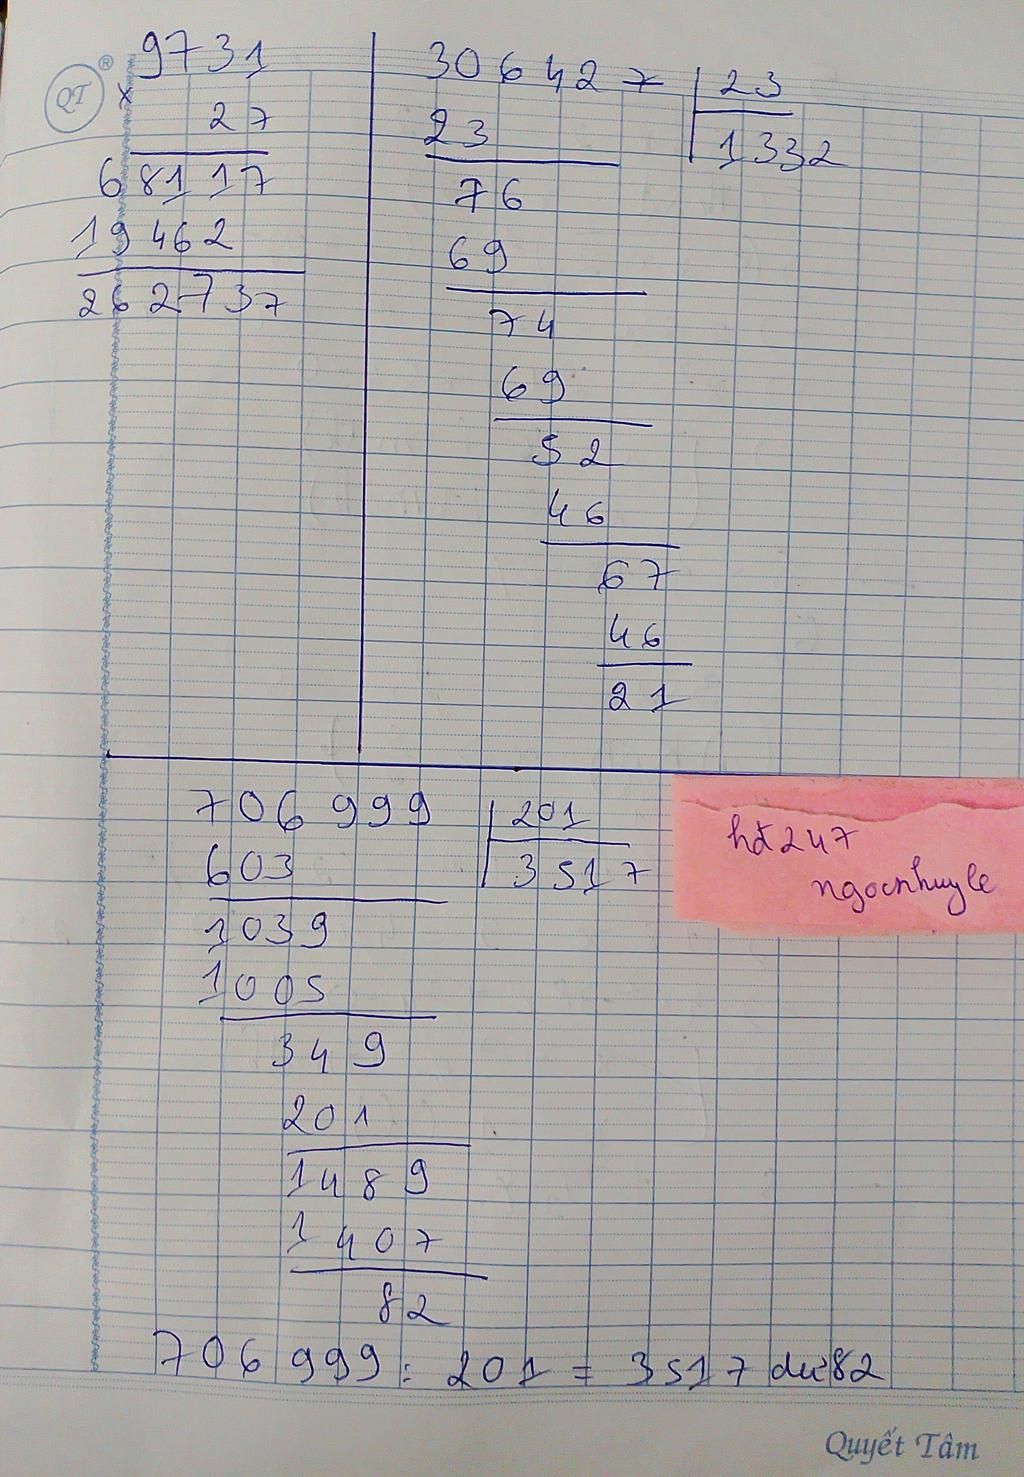 QT ®
9731
x
27
68117
19462
262737
306427 | 23
23
1332
76
69
74
69
52
46
67
46
21
706 999 | 201
603
3517
1039
1005
349
201
1489
1407
82
hđ247
ngocnhuyle
706 999 : 201 = 3517 dư 82
Quyết Tâm